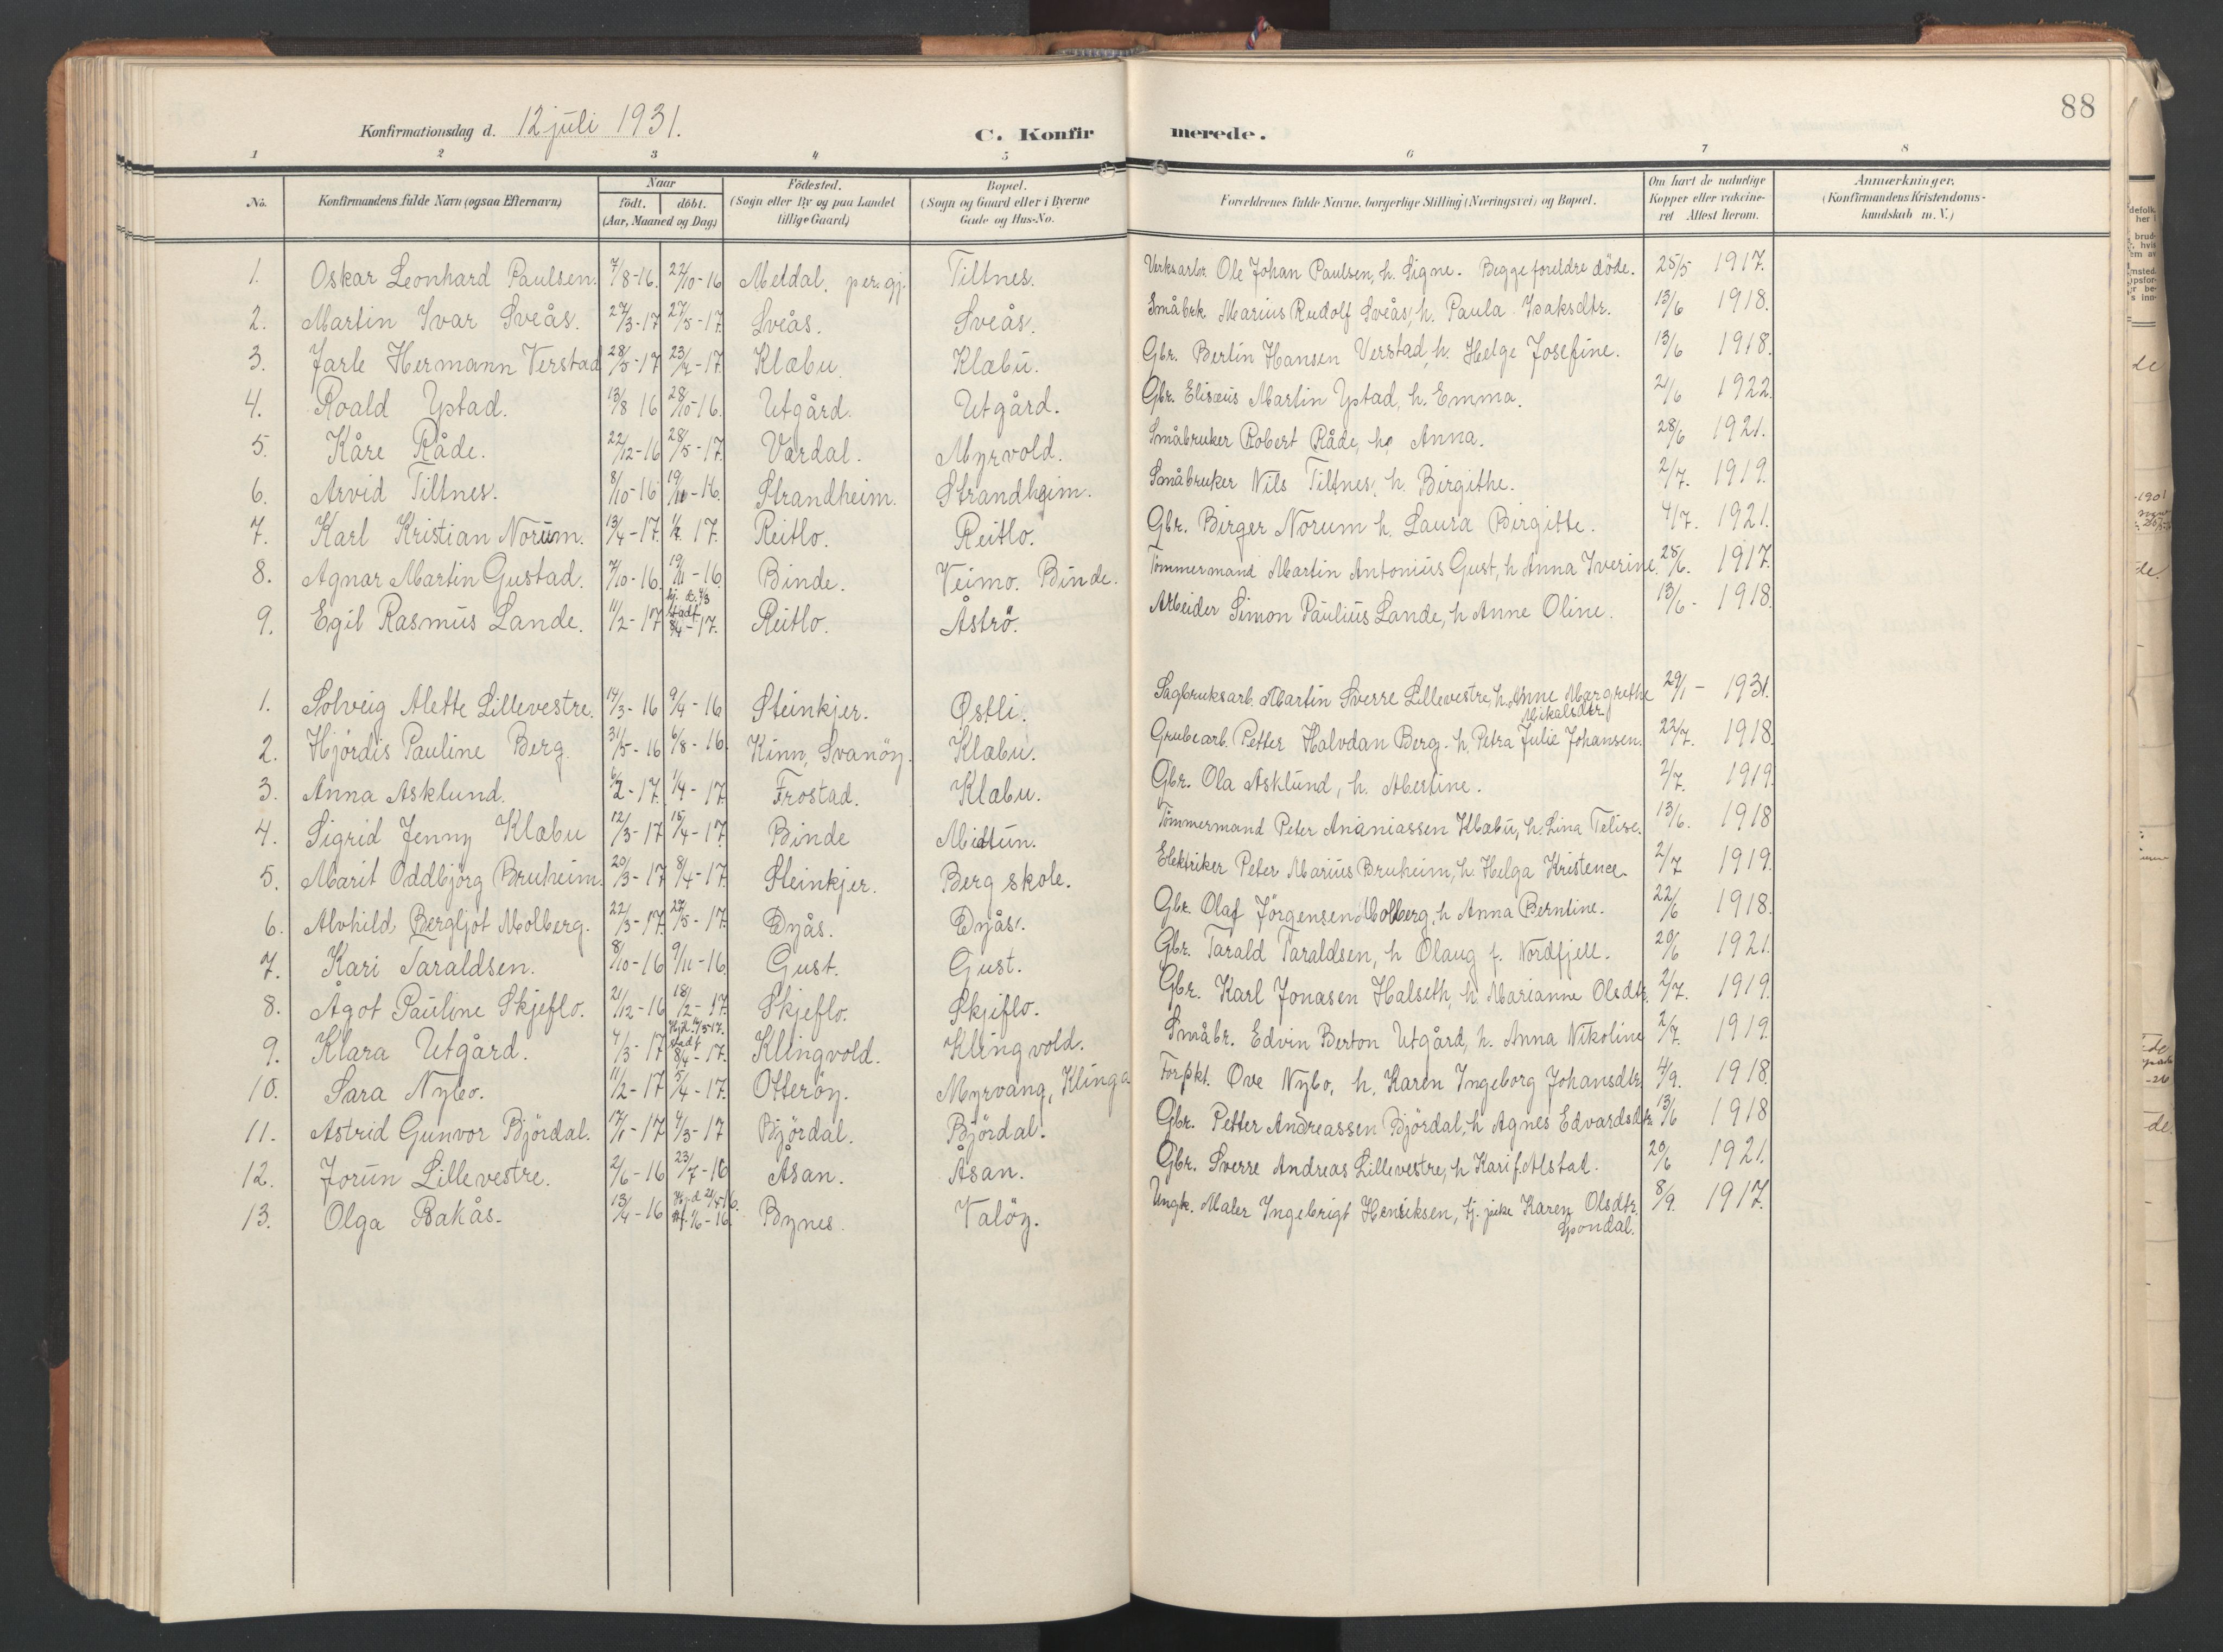 88
Konfirmationsdag d. 12 juli 1931.
C. Konfirmerede.
1 2 3 4 5 6 7 8
No. Konfirmandens fulde Navn (ogsaa Efternavn) Naar födt. döbt. (Aar, Maaned og Dag) Födested. (Sogn eller By og paa Landet tillige Gaard) Bopæl. (Sogn og Gaard eller i Byerne Gade og Hus-No. Forældrenes fulde Navne, borgerlige Stilling (Næringsvei) og Bopæl. Om havt de naturlige Kopper eller vakcineret Attest herom. Anmærkninger. (Konfirmandens Kristendomskundskab m. V.)
1. Oskar Leonhard Paulsen. 7/8-16. 22/10-16 Meldal, per. gj. Tiltnes. Verksarbr. Ole Johan Paulsen, h. Signe. Begge foreldre döde. 25/5 1917.
2. Martin Ivar Sveås. 27/3-17 27/5-17. Sveås. Sveås. Småbrk Marius Rudolf Sveås, h. Paula Isaksdtr. 13/6 1918.
3. Jarle Hermann Verstad 28/5-17 23/7-17. Klæbu. Klæbu. Gbr. Bertin Hansen Verstad, h. Helge Josefine. 13/6 1918.
4. Roald Ystad. 13/8 16 28/10-16. Utgård. Utgård. Gbr. Elisæus Martin Ystad, h. Emma. 21/6 1922.
5. Kåre Råde. 22/12-16 28/5-17. Vardal. Myrvold. Småbruker Robert Råde, h. Anna. 28/6 1921.
6. Arvid Tiltnes. 8/10-16 19/11-16. Strandheim. Strandheim. Småbruker Nils Tiltnes, h. Birgithe. 2/7. 1919.
7. Karl Kristian Norum. 13/4-17. 17. Reitlo. Reitlo. Gbr. Birger Norum h. Laura Birgitte. 4/7. 1921.
8. Agnar Martin Gustad. 7/10-16. 19/11-16 Binde. Veimo. Binde. Tömmermand Martin Antonius Gust, h Anna Iverine. 25/6. 1917.
9. Egil Rasmus Lande. 11/2-17 hj. d. 4/3 stadf 8/4-17. Reitlo. Åströ. Arbeider Simon Paulius Lande, h Anne Oline. 13/6- 1918.
1. Solveig Alette Lillevestre. 14/3-16 9/4-16 Steinkjer. Østli. Sagbruksarb. Martin Sverre Lillevestre, h. Anne Margrethe Mikalsdtr. 29/1- 1931.
2. Hjördis Pauline Berg. 31/5-16 6/8-16. Kinn, Svanöy. Klæbu. Grubearb. Petter Halvdan Berg. h. Petra Julie Johansen. 22/7. 1918.
3. Anna Asklund. 6/2-17. 1/4-17 Frostad. Klæbu. Gbr. Ola Asklund, h. Albertine. 2/7. 1919.
4. Sigrid Jenny Klæbu 12/3-17 15/4-17. Binde Midtun. Tömmermand Peter Ananiassen Klæbu, h. Lina Telise. 13/6. 1918
5. Marit Oddbjörg Bruheim. 20/3-17 8/4-17. Steinkjer. Berg skole. Elektriker Peter Marius Bruheim, h. Helga Kristence. 2/7 1919.
6. Alvhild Bergljot Molberg. 22/3-17. 27/5-17. Dyås. Dyås. Gbr. Olaf Jörgensen Molberg, h Anna Berntine. 22/6 1918.
7. Kari Taraldsen. 8/10-16 9/11-16. Gust. Gust. Gbr. Tarald Taraldsen, h Olaug f. Nordfjell. 20/6 1921.
8. Ågot Pauline Skjeflo. 21/12-16 18/2-17. Skjeflo. Skjeflo. Gbr. Karl Jonasen Halseth, h. Marianne Olsdtr. 2/7. 1919.
9. Klara Utgård. 4/3-17 stadf 8/4-17. Klingvold. Klingvold. Småbr. Edvin Berton Utgård, h. Anna Nikoline 2/7. 1919.
10. Sara Nybo. 11/2-17 5/4-17. Otteröy. Myrvang, Klinga Forpkt. Ove Nybo, h. Karen Ingeborg Johansdtr. 4/9. 1918.
11. Astrid Gunvor Björdal. 17/1-17 4/3-17 Björdal. Björdal. Gbr. Petter Andreassen Björdal, h Agnes Edvardsdtr. 13/6 1918
12. Jorun Lillevestre. 2/6-16 23/7-16 Åsan. Åsan. Gbr. Sverre Andreas Lillevestre, h Kari f. Alstad. 20/6 1921.
13. Olga Bakås. 13/4-16 Bynes. Valöy. Ungk. Maler Ingebrigt Henriksen, tj. pike Karen Olsdtr. Spondal. 8/9. 1917.